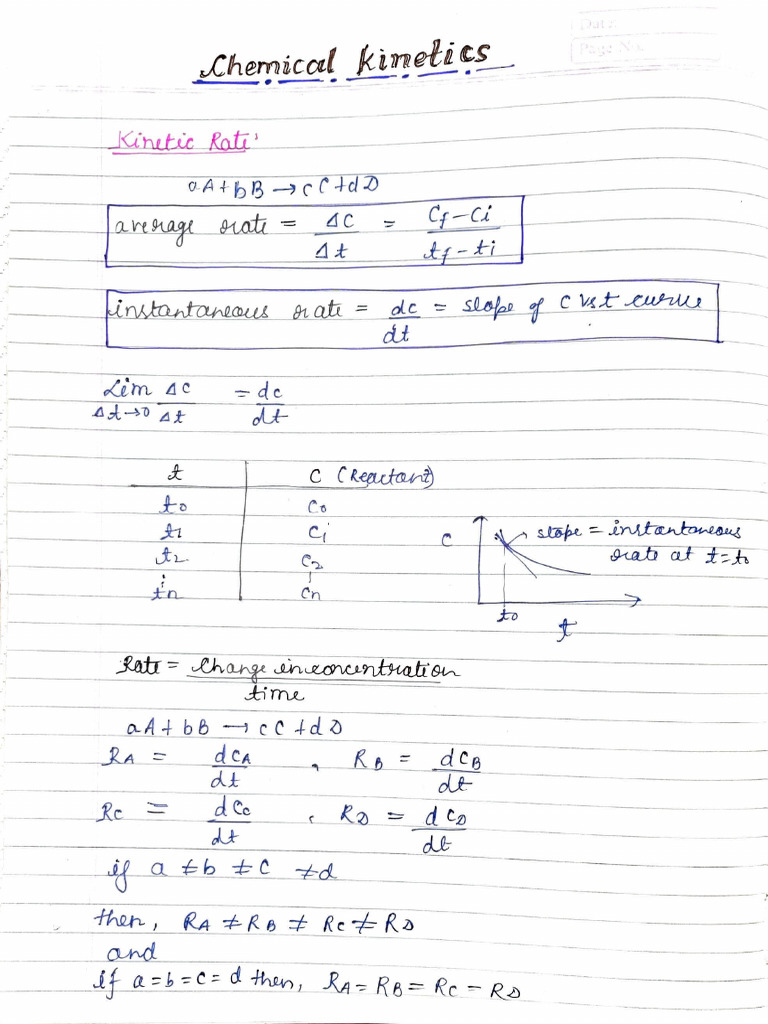 Date
Page No.
Chemical Kinetics
Kinetic Rate:
aA + bB → cC + dD
average rate = ΔC/Δt = Cf - Ci / tf - ti
instantaneous rate = dc/dt = slope of C vs t curve
Lim Δt→0 Δc/Δt = dc/dt
t | C (Reactant)
t0 | C0
t1 | C1
t2 | C2
tn | Cn
C
slope = instantaneous
rate at t = t0
t0
t
Rate = Change in concentration / time
aA + bB → cC + dD
RA = dCA/dt , RB = dCB/dt
RC = dCc/dt , RD = dCD/dt
if a ≠ b ≠ C ≠ d
then, RA ≠ RB ≠ RC ≠ RD
and
if a = b = c = d then, RA = RB = RC - RD